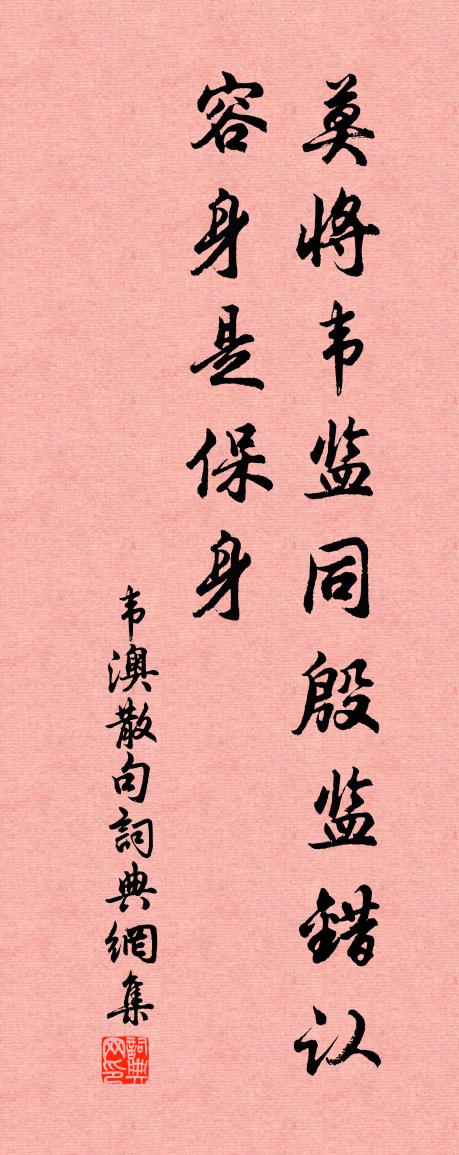 莫将韦监同殷监错认
容身是保身
韦澳散句詞典網集
詞典网印